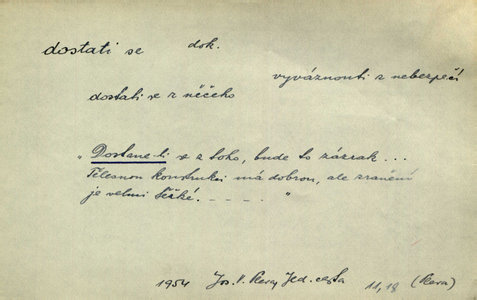 dostati se dok.
vyváznouti z nebezpečí
dostati se z něčeho
„Dostane-li se z toho, bude to zázrak...
Tělesnou konstrukci má dobrou, ale zranění
je velmi těžké. - - - - - "
1954 Jos. V. Jed. cesta 11, 18